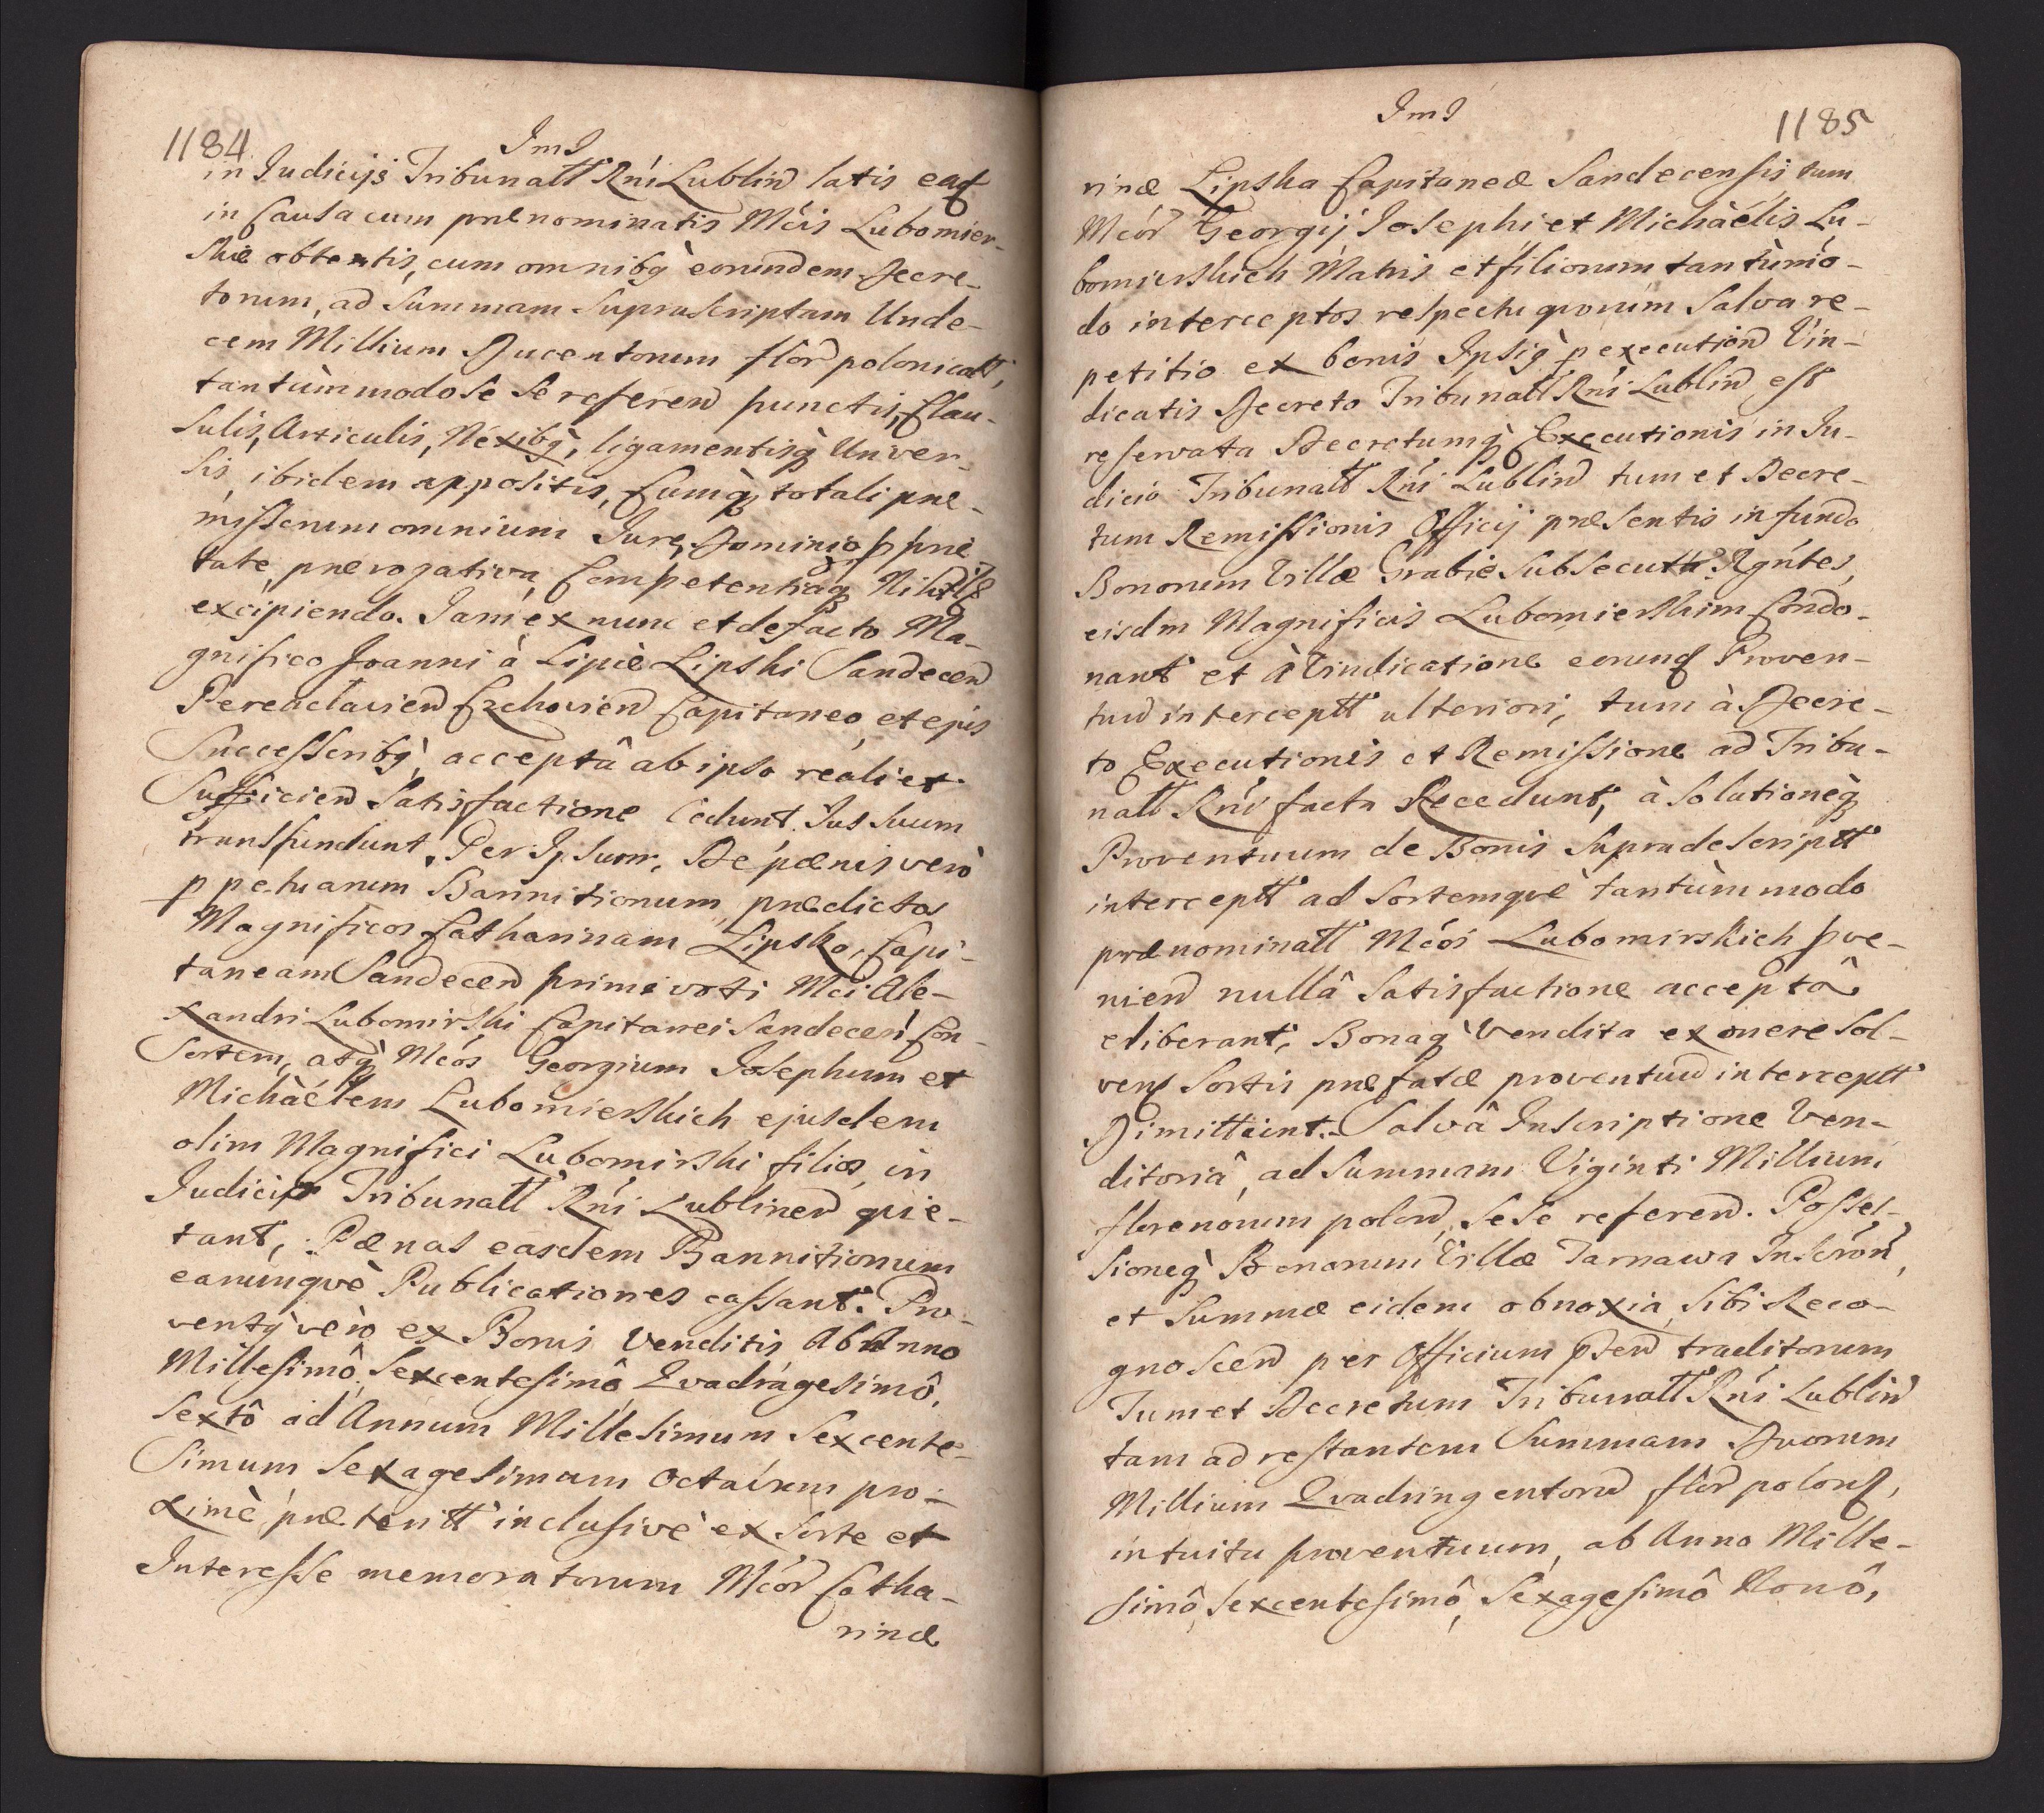 1184
ImJ
in Judicijs Tribunall Rńi Lublin latis eaq
in Causa cum prænominatis Mćis Lubomier-
skie obtentis, cum omnibq eorundem Decre-
torum, ad Summam Supra scriptam Unde-
cem Millium Ducentorum flor polonicall,
tantùmmodo se se referen punctis, Clau-
sulis, Articulis, Nexibq, ligamentisq Unver-
sis, ibidem appositis, Cumq totali præ-
missorum omnium Jure, Dominio pprie
tate, prærogativa, Competentiaq Nihil
excipiendo. Jam ex nunc et de facto Ma-
gnifico Joanni à Lipie Lipski Sandecen
Perenclavien Czchovien Capitaneo, et ejus
Successoribq, acceptâ ab ipso reali et
Sufficien Satisfactione Cedunt. Jus suum
transfundunt. Per Ipsum, De pænis verò
ppetuarum Bannitionum, prædictos
Magnificos Catharinam Lipska, Capi-
taneam Sandecen primi voti Mći Ale-
xandri Lubomirski Capitanei Sandecen Con-
sortem, atq Mćos Georgium Josephum et
Michàélem Lubomierskich ejusdem
olim Magnifici Lubomirski filios, in
Judicijs Tribunall Rńi Lublinen quie-
tant, Pænas easdem Bannitionum
earumquè Publicationes cassant. Pro-
ventq verò ex Bonis Venditis Ab Anno
Millesimô, Sexcentesimô, Qvadragesimô,
Sextô ad Annum Millesimum Sexcente-
Simum Sexagesimum Octavum pro-
ximè præteritt inclusivè ex sorte et
Interesse memoratorum Mćor Catha-
rinæ
ImJ
1185
rinæ Lipska Capitaneæ Sandecensis, tum
Mćor Georgij Josephi et Michàélis Lu-
bomierskich Matris et filiorum tantùmo-
do interceptos respectu quorum Salva re-
petitio ex bonis Ipsiq p execution Vin-
dicatis Decreto Tribunall Rńi Lublin est
reservata Decretumq Executionis in Ju-
dicio Tribunall Rńi Lublin tum et Decre-
tum Remissionis Officij præsentis in fundo
Bonorum Villæ Grabie Subsecutt Rgńtes,
eisdm Magnificis Lubomierskim Condo-
nant et à Vindicatione eorunq Proven-
tuu interceptt ulteriori, tum à Decre-
to Executionis et Remissione ad Tribu-
nall Rńi facta Recedunt, à Solutioneq
Proventuum de Bonis Supradescriptt
interceptt ad Sortemquè tantùmmodo
prænominatt Mćos Lubomirskich pve-
nien nullâ Satisfactione acceptâ
eliberant, Bonaq Vendita ex onere Sol-
ven Sortis præfatæ proventuu interceptt
Dimittunt. Salvâ Inscriptione Ven-
ditoriâ, ad Summam Viginti Millium
florenorum polon, sese referen. Posses-
sioneq Bonorum Villæ Tarnawa Inscron,
et Summæ eidem obnoxia, Sibi Reco-
gnoscen per Officium psen traditorum
Tum et Decretum Tribunall Rńi Lublin
tam ad restantem Summam Duorum
Millium Qvadringentoru flor polon,
intuitu proventuum, ab Anno Mille-
simô, Sexcentesimô, Sexagesimô Nonô,